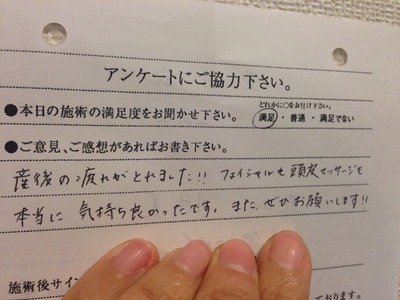 アンケートにご協力下さい。
どれかに○をお付け下さい。
●本日の施術の満足度をお聞かせ下さい。 満足・普通・満足でない
●ご意見、ご感想があればお書き下さい。
産後の疲れがとれました!! フェイシャルも頭皮マッサージも
本当に 気持ち良かったです。また、ぜひお願いします!!
施術後サイン
ております。